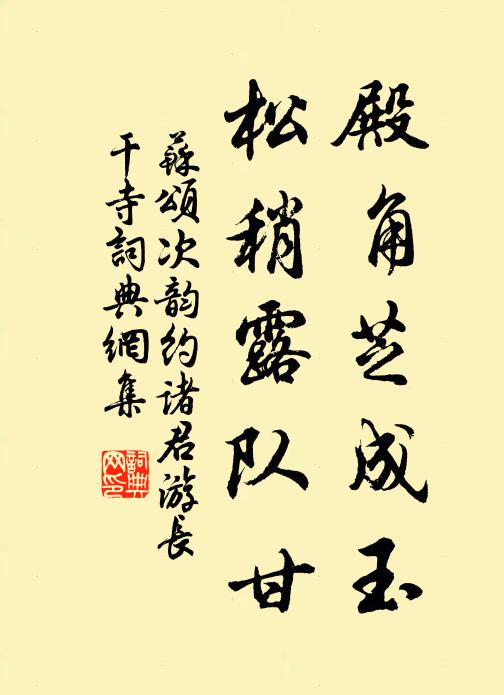 殿角芝成玉
松稍露队甘
蘇頌次韵约诸君游長
干寺詞典網集
詞典网印